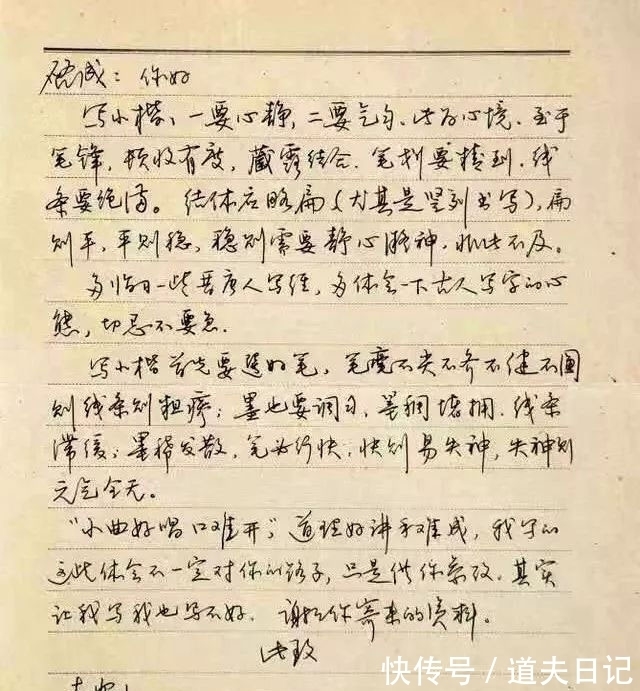 你好
写小楷，一要心静，二要气匀，此为心境。至于
笔锋，顿收有度，藏露结合，笔划要精到，线
条要饱满。结体应略扁（尤其是竖列书写），扁
则平，平则稳，稳则需要静心凝神，非此不及。
多临习一些晋唐人写经，多体会一下古人写字的心
态，切忌不要急。
写小楷首先要选好笔，笔度不尖不齐不健不圆
则线条则粗疏；墨也要调习，墨稠堵拥，线条
滞缓；墨稀发散，笔为行快，快则易失神，失神则
元气全无。
“小曲好唱口难开”，道理好讲和难成，我写的
这些体会不一定对你的路子，只是供你参考。其实
让我写我也写不好。谢谢你寄来的资料。
此致
快传号／道夫日记